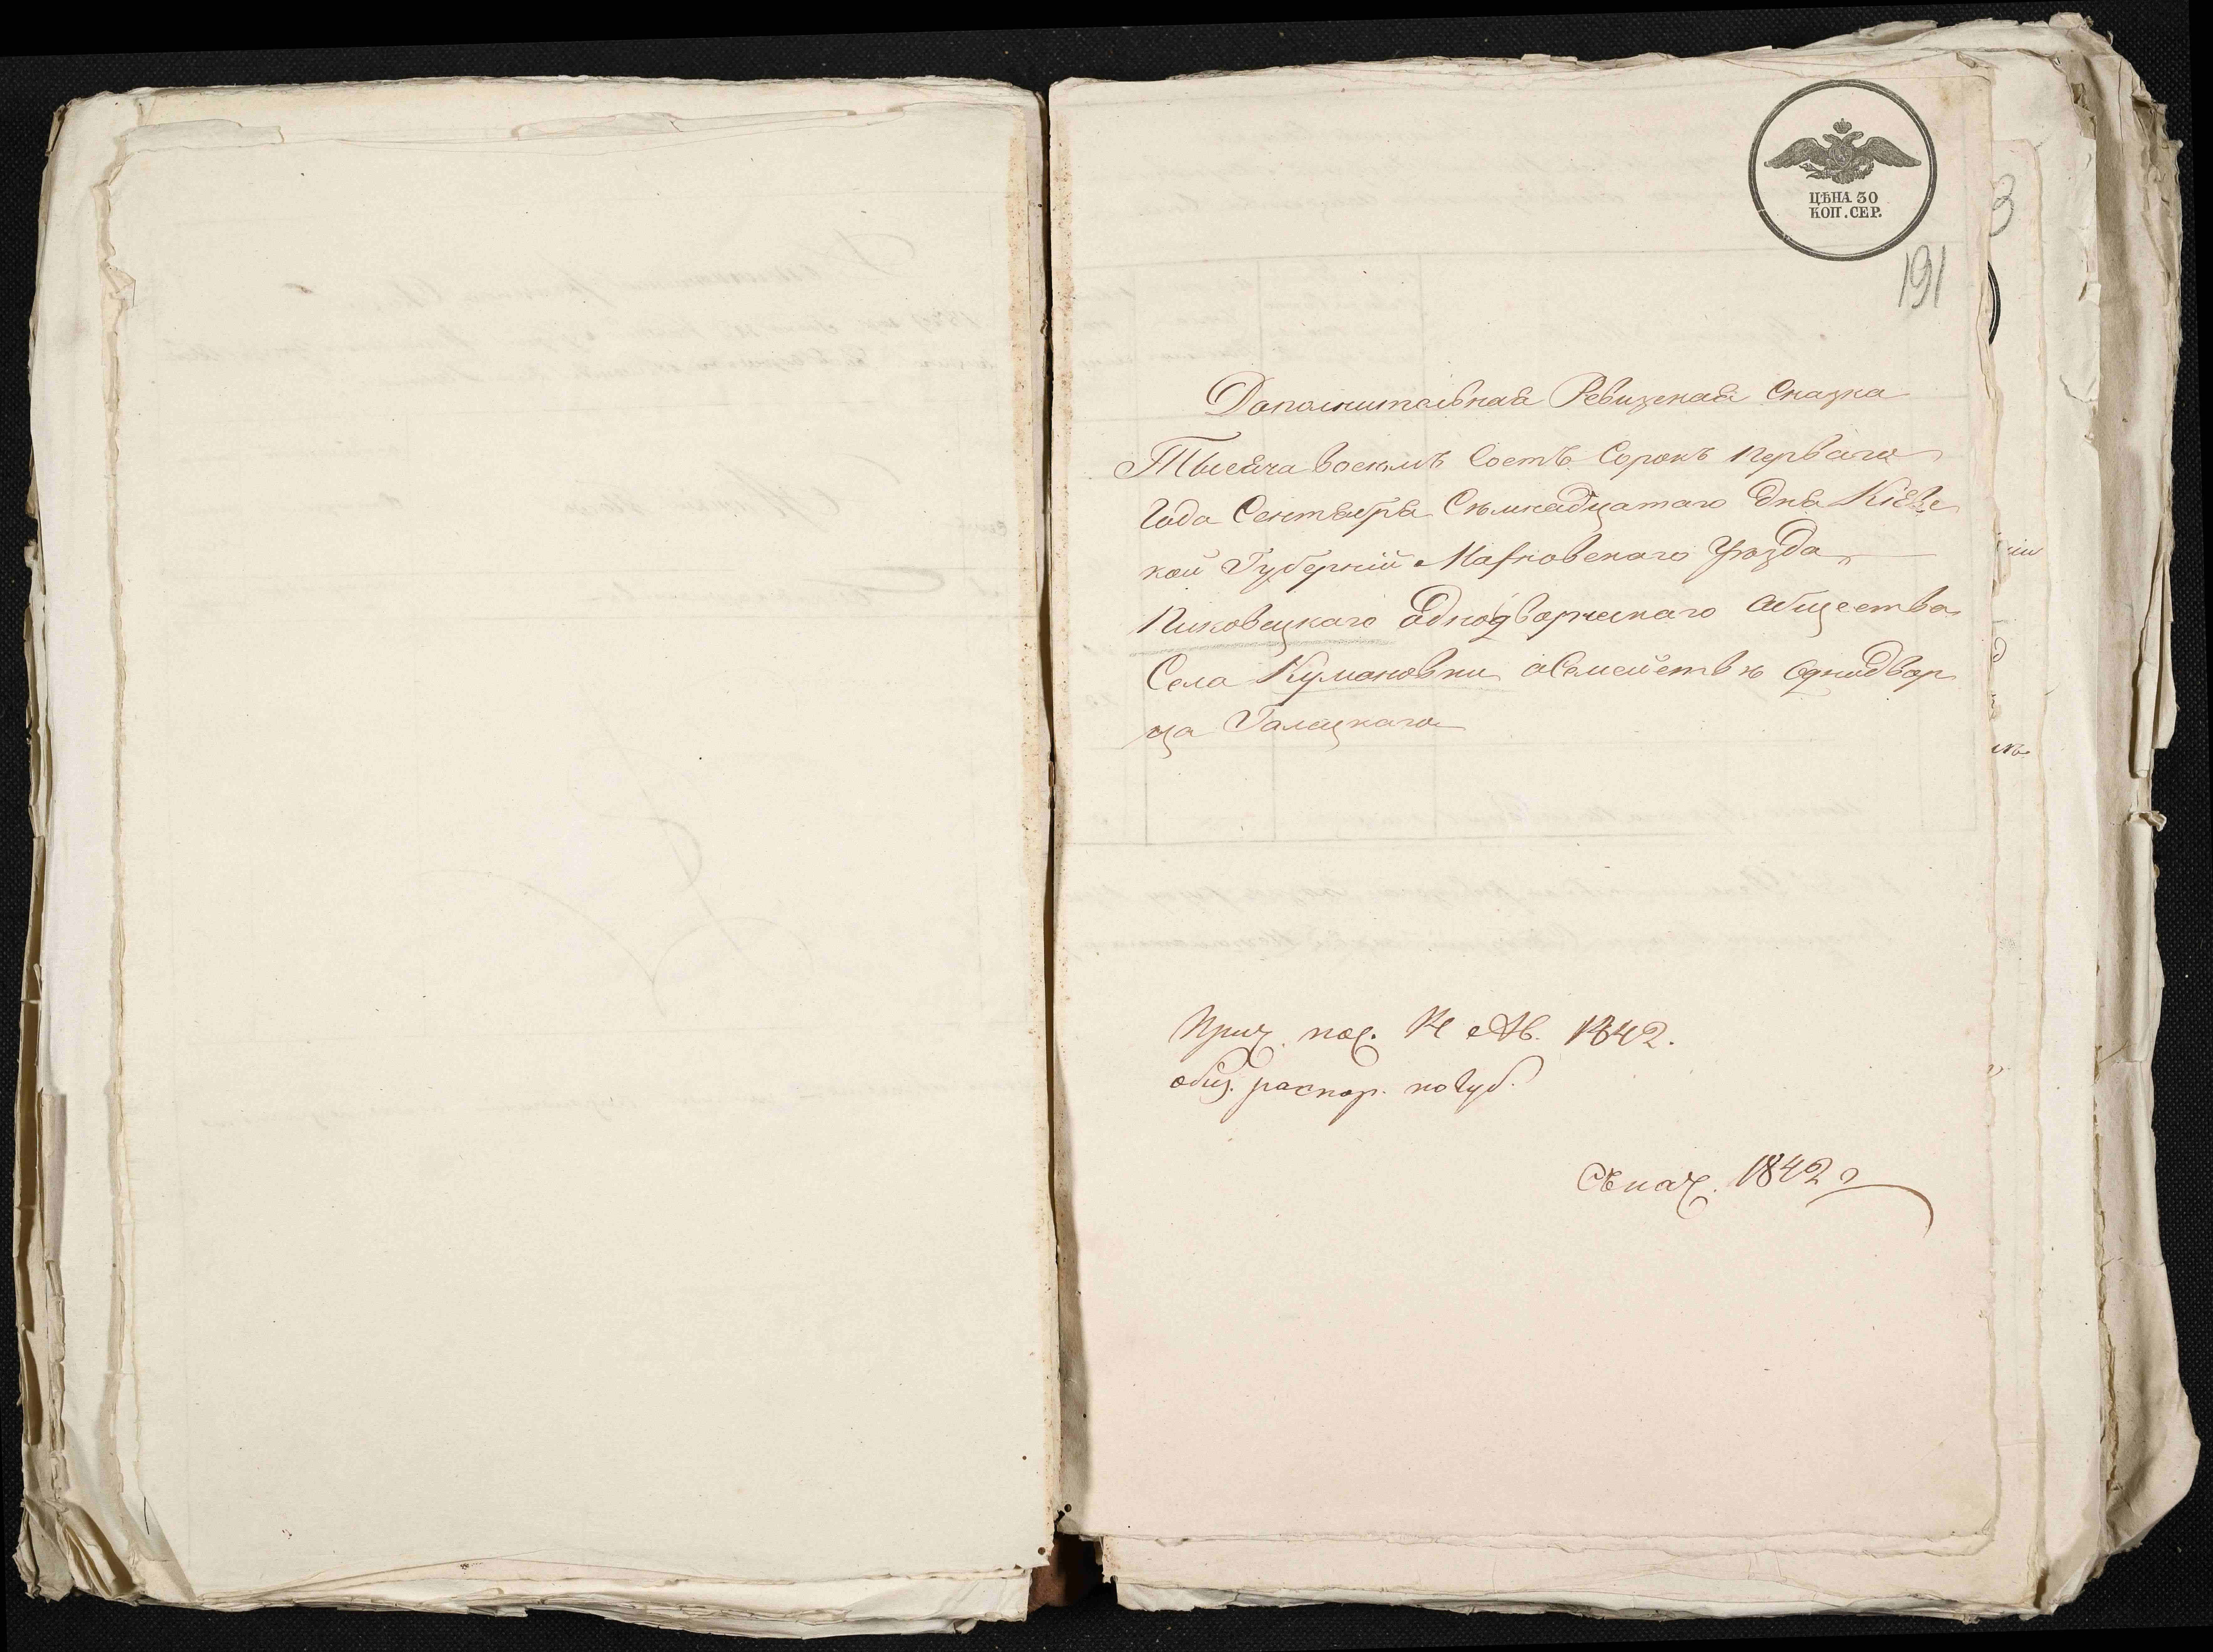 ЦѢНА 30
КОП. СЕР.
191
Дополнительная Ревизская Сказка
Тысяча восемъ Сотъ Сорокъ Перваго
Года Сентября Семнадцатаго Дня Кіевс
кой Губерніи Махновскаго Уѣзда
Пиковецкаго Однодворческаго Общества
Села Кумановки о Семействѣ Однодвор
ца Галецкаго
Прич. пос. 14 Ав. 1842.
общ. распор. по Губ.
Съ нач. 1842 г